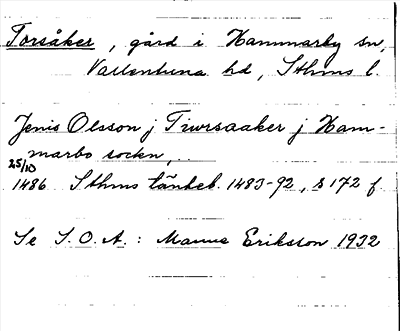 Torsåker, gård i Hammarby sn,
Vallentuna hd, Sthms l.
Jenis Olsson j Tiwrsaaker j Ham-
marbo sockn,
25/10
1486 Sthms tänkeb. 1483-92, s 172 f.
Se S.O.A.: Manne Eriksson 1932